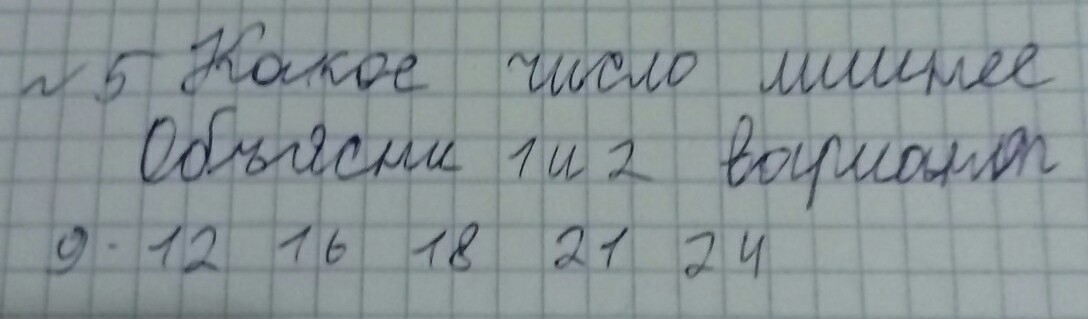 №5 Какое число лишнее
Объясни 1 и 2 вариант
9. 12 16 18 21 24